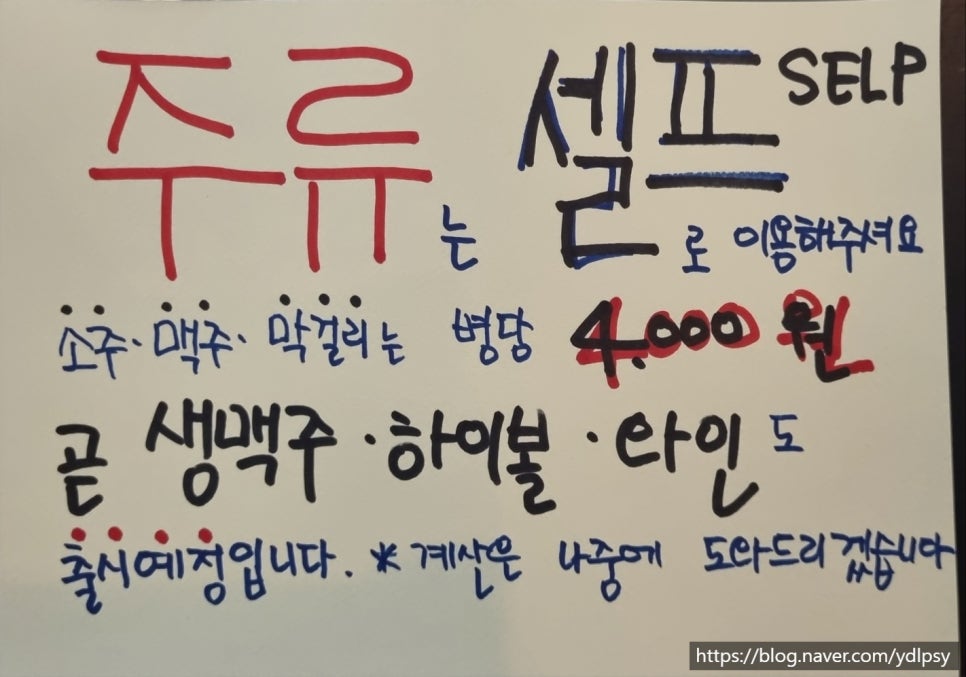 주류는 셀프 SELP로 이용해주셔요
소주·맥주·막걸리는 병당 4.000원
곧 생맥주·하이볼·와인도
출시예정입니다. * 계산은 나중에 도와드리겠습니다
https://blog.naver.com/ydlpsy